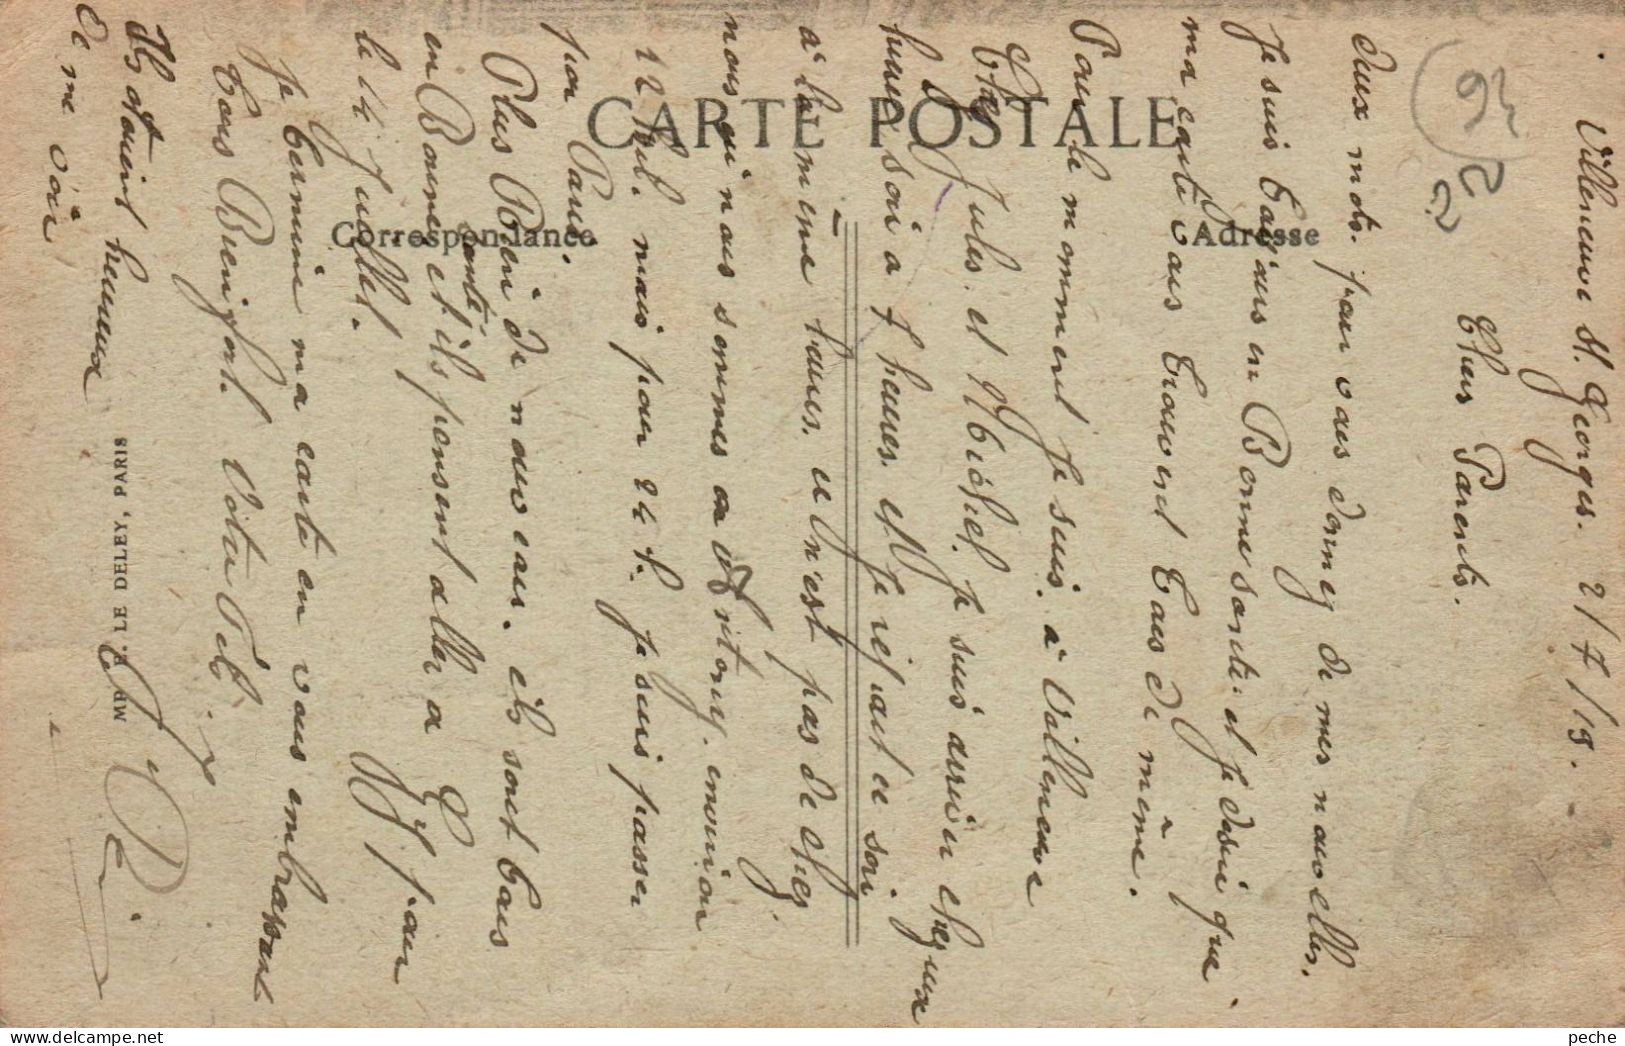 Villeneuve St. Georges. 2/7/19.
Chers Parents.
Deux mots. pour vous donnez de mes nouvelles.
Je suis toujours en Bonne santé. et je desire que
ma carte vous trouvent tous de même.
Pour le momment je suis. à Villeneuve
Chez Jules. et Michel. je suis arrivé chez eux
hier soir a 7 heures. et je repart ce soir
à la même heure. ce n'est pas de chez
nous qu'nous sommes a Antony. environ
12 kil. mais pour 24 h. je suis passer
par Paris.
Plus Rien de nouveau. ils sont tous
en Bonne santé et ils pensent aller a pour
le 14 Juillet.
Je termine ma carte en vous embrassant
tous Bien fort. Votre Fils.
Ils étaient heureux
de me voir
CARTE POSTALE
Correspondance
Adresse
LE DELEY, PARIS
peche